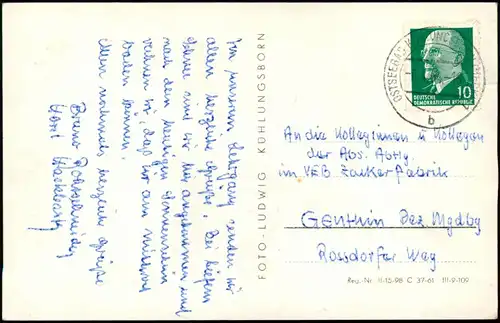 Von unserem Lehrgang senden wir
allen herzliche Grüße. Bei tiefem
Schnee sind wir hier angekommen und
nach dem heutigen Sonnenschein
rechnen wir, daß wir am mittwoch
baden können.
Nun nochmals herzliche Grüße
Bruno
Horst
FOTO-LUDWIG KÜHLUNGSBORN
OSTSEEBAD
b
DEUTSCHE
DEMOKRATISCHE REPUBLIK
10
An die Kolleginnen u Kollegen
der Abs. Abtlg.
im VEB Zuckerfabrik
Genthin Bez Mgdbg
Rossdorfer Weg
Reg.-Nr. II-15-98 C 37-61 III-9-109